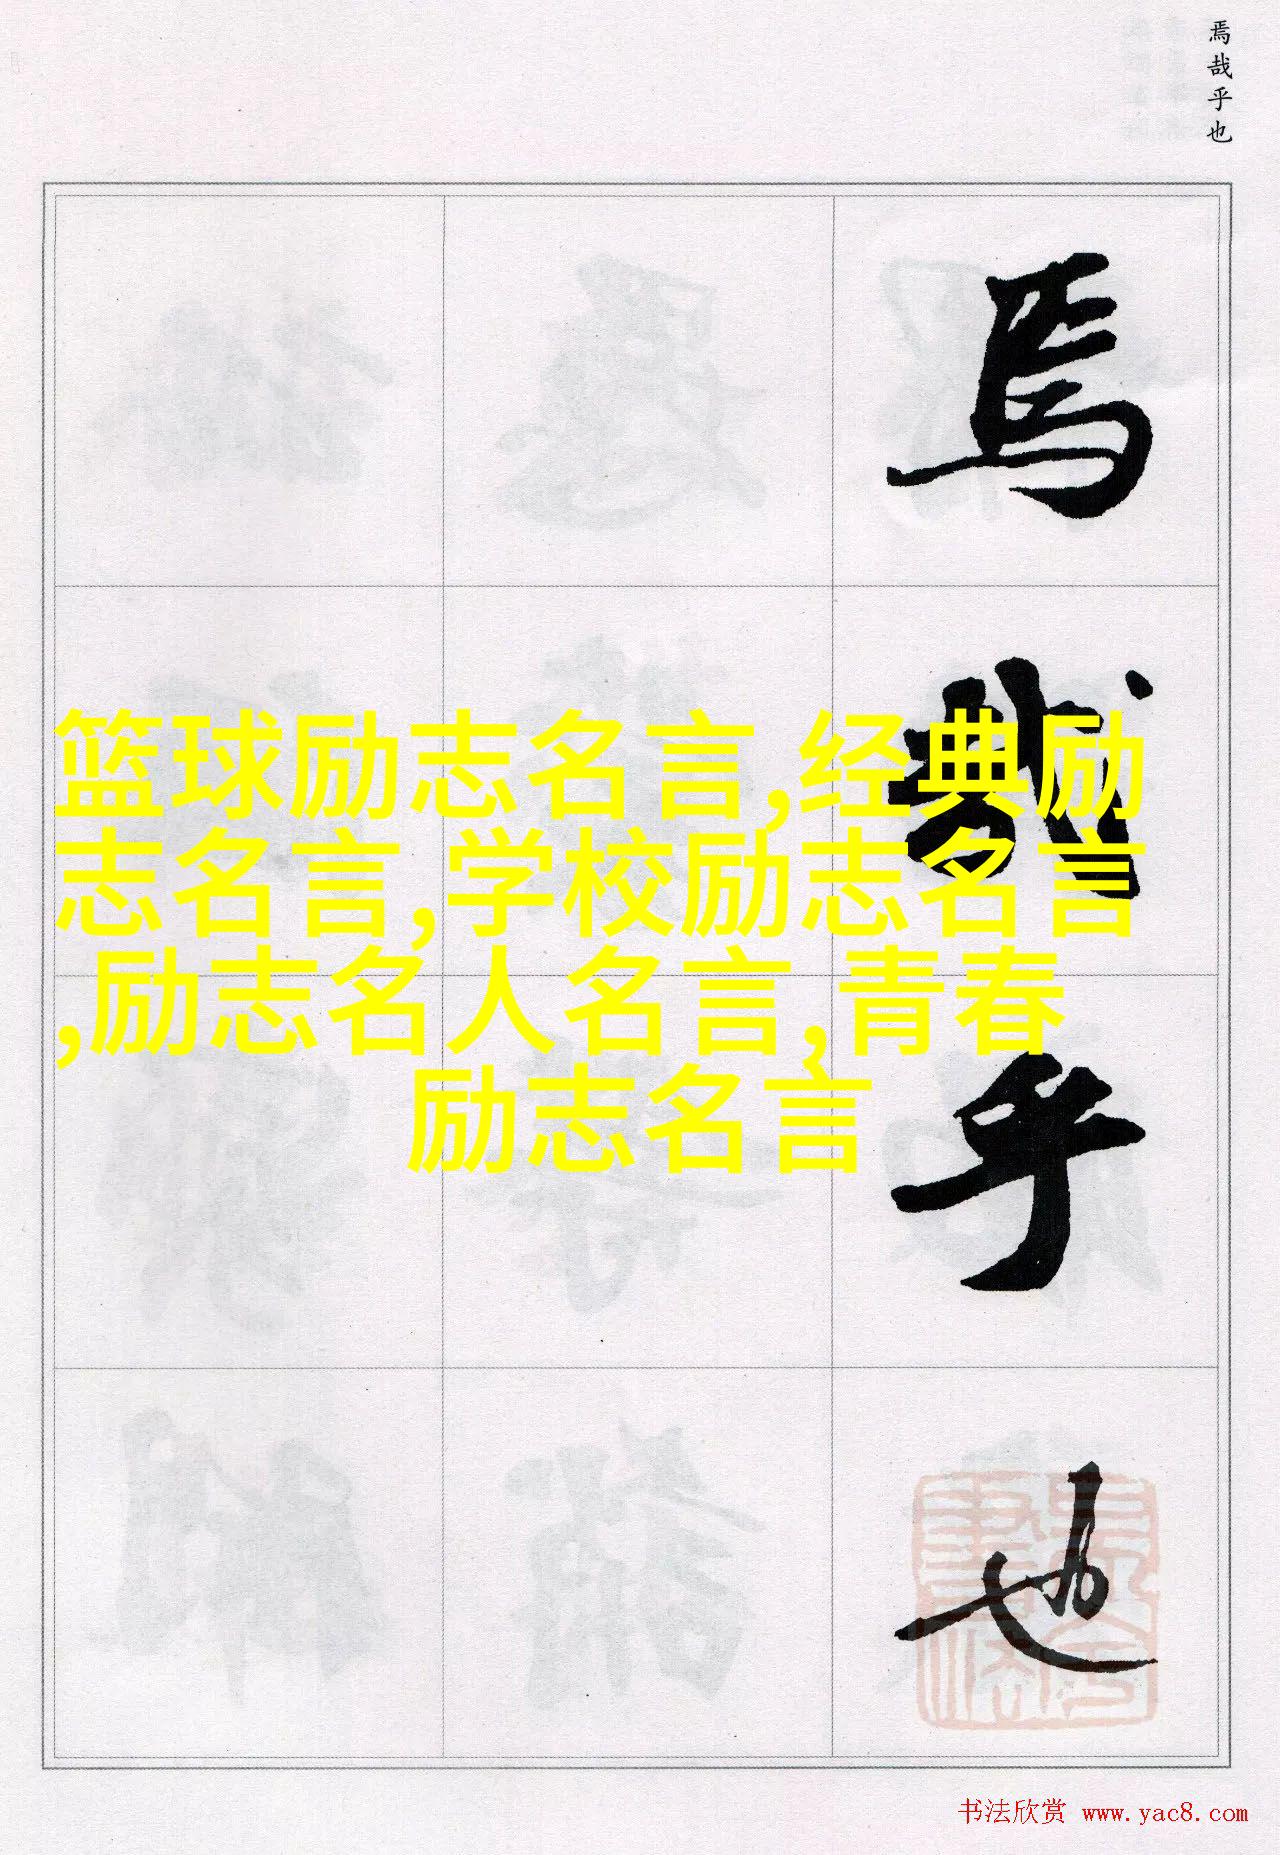 焉哉乎也
焉
哉
乎
也
篮球励志名言,经典励
志名言,学校励志名言
,励志名人名言,青春
励志名言
书法欣赏 www.yac8.com